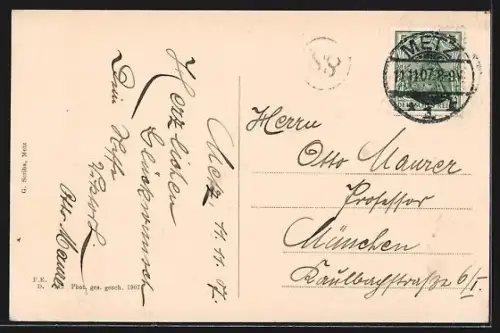 METZ
11.11.07. 8-9V.
88
Metz 11.11.07.
Herzlichen
Glückwunsch
Dein Neffe
Otto Maurer
Herrn
Otto Maurer
Professor
München
Kaulbachstraße 6/I.
G. Scriba, Metz
P.E.
D. Phot. ges. gesch. 1907